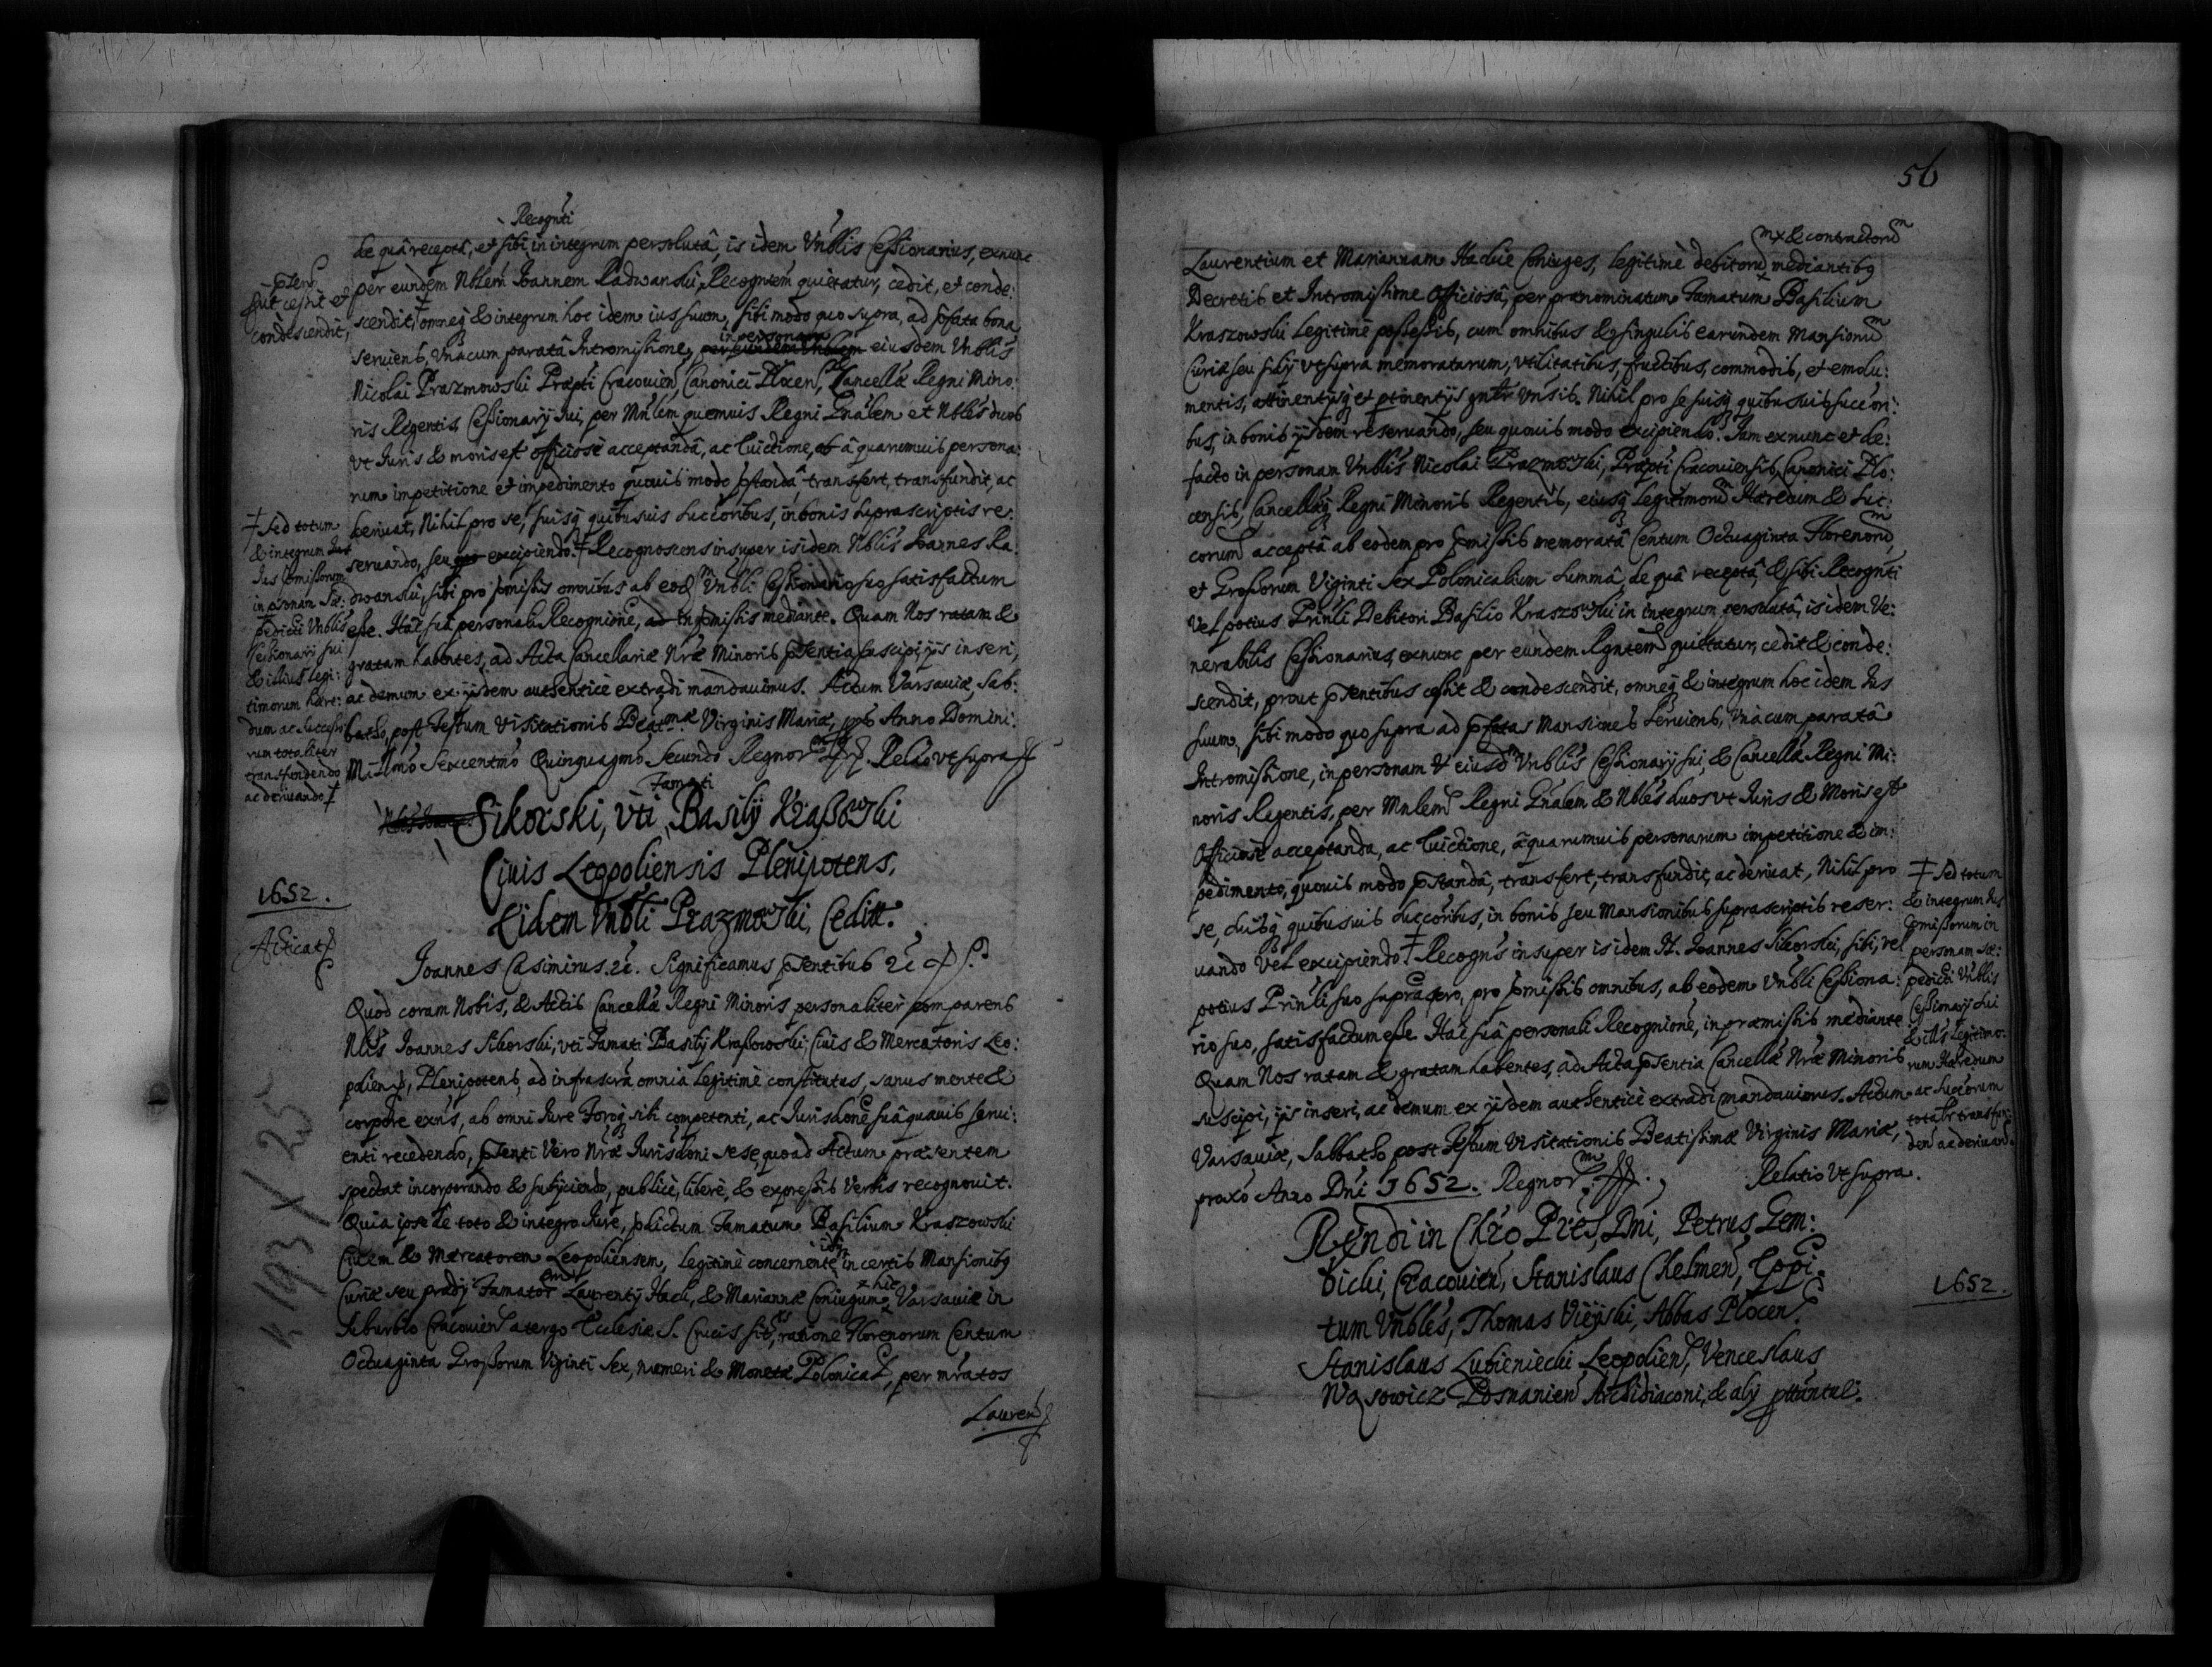 Recognti
de quâ receptâ, et sibi in integrum persolutâ, is idem Vnblis Cessionarius, exnunc
per eundem Nblem Ioannem Radwanski, Recogntem quietatur, cedit, et conde:
scendit, omneq; & integrum hoc idem ius suum, sibi modo quo supra, ad pfata bona
seruiens, Vnacum paratâ Intromissione, per eundem Vnblem in personam eiusdem Vnblis
Nicolai Prazmowski Præpti Cracouien, Canonici Plocen, Cancellæ Regni Mino:
ris Regentis, Cessionarij sui, per Mnlem quemuis Regni Gnalem et Nbles duos
vt Iuris & moris est officiose acceptandâ, ac Euictione, ab â quarumuis persona:
rum impetitione et impedimento quouis modo pstandâ, transfert, transfundit, ac
deriuat, Nihil pro se, suisq; quibusuis Succoribus, in bonis suprascriptis re:
seruando, seu excipiendo. ‡ Recognoscens insuper is idem Nblis Ioannes Ra:
dwanski, sibi pro pmissis omnibus ab eod Vnbli Cessionario suo satisfactum
esse. Hac suâ personali Recognione, in pmissis mediante. Quam Nos ratam &
gratam habentes, ad Acta Cancellariæ Nræ Minoris pntia suscipi, ijs inseri,
ac demum ex ijsdem authentice extradi mandauimus. Actum Varsauiæ, Sab:
batho, post Festum Visitationis Beatmæ Virginis Mariæ, Anno Domini
Millmo Sexcentmo Quinquagmo Secundo Regnor. Relato vt supra
ptens
put cessit et
condescendit,
‡ Sed totum
& integrum
Ius pmissorum
in psonam Sæ:
pedicti Vnblis
Cessionarij sui
& illius Legi:
timorum Hære:
dum ac Succesó
rum totaliter
transfundendo
ac deriuando ‡
Famati
Sikorski, vti Basilij Kraßowski
Ciuis Leopoliensis Plenipotens,
Eidem Vnbli Prazmowski, Cedit.
1652.
Acticat
Ioannes Casimirus. 2c. Significamus pntibus 2c
Quod coram Nobis, & Actis Cancellæ Regni Minoris personaliter comparens
Nblis Ioannes Sikorski, vti Famati Basilij Kraßowski, Ciuis & Mercatoris Leo:
polien, Plenipotens, ad infrascra omnia legitime constitutus, sanus mente &
corpore exns, ab omni Iure Foroq; sibi competenti, ac Iurisdone suâ quauis serui:
enti recedendo, pnti Vero Nræ Iurisdoni sese, quoad Actum præsentem
spectat incorporando & subijciendo, publice, libere, & expressis Verbis recognouit.
Quia ipse de toto & integro Iure, pdictum Famatum Basilium Kraszowski
Ciuem & Mercatorem Leopoliensem, legitime concernente, in certis Mansionibq
Curiæ seu prædij Famator Laurentij Hacki, & Mariannæ Coniugum, hic Varsauiæ in
Suburbio Cracouien atergo Ecclesiæ S. Crucis sitis, ratione Florenorum Centum
Octuaginta Grossorum Viginti Sex, numeri & Monetæ Polonical, per mratos
Lauren
56
mx & contractorum
Laurentium et Mariannam Hackie Coniuges, legitime debitorum, mediantibq
Decretis et Intromissione Officiosâ, per prænominatum Famatum Basilium
Kraszowski legitime possessis, cum omnibus & singulis earundem Mansionum
Curiæ seu sibi vt supra memoratarum, vtilitatibus, fructibus, commodis, et emolu:
mentis, attinentijsq; et ptinentijs gnlr Vnsis. Nihil pro se suisq; quibusuis succori:
bus, in bonis ijsdem reseruando, seu quouis modo excipiendo. Iam exnunc et de:
facto in personam Vnblis Nicolai Prazmowski, Præpti Cracouiensis, Canonici Plo:
censis, Cancellæq; Regni Minoris Regentis, eiusq; legitimorum Hæredum & Suc:
corum acceptâ ab eodem pro pmissis memoratâ Centum Octuaginta Florenorum,
et Grossorum Viginti Sex Polonicalium Summâ, de quâ receptâ, & sibi Recognti
vel potius Prinli Debitori Basilio Kraszowski in integrum persolutâ, is idem Ve:
nerabilis Cessionarius, exnunc per eundem Rgntem quietatur, cedit & conde:
scendit, prout pntibus cessit & condescendit, omneq; & integrum hoc idem Ius
suum, sibi modo quo supra ad pfatas Mansiones Seruiens, Vnacum paratâ
Intromissione, in personam eiusd Vnblis Cessionarij sui, & Cancellæ Regni Mi:
noris Regentis, per Mnlem Regni Gnalem & Nbles duos vt Iuris & Moris est
Officiose acceptanda, ac Euictione, â quarumuis personarum impetitione & im:
pedimento, quouis modo pstandâ, transfert, transfundit, ac deriuat, Nihil pro
se, suisq; quibusuis Succoribus, in bonis seu Mansionibus suprascriptis reser:
uando vel excipiendo ‡ Recogns insuper is idem N. Ioannes Sikorski, sibi, vel
potius Prinli suo supra, pro pmissis omnibus, ab eodem Vnbli Cessiona:
rio suo, satisfactum esse. Hac suâ personali Recognione, in præmissis mediante
Quam Nos ratam & gratam habentes, ad Acta pntia Cancellæ Nræ Minoris
suscipi, ijs inseri, ac demum ex ijsdem authentice extradi mandauimus. Actum
Varsauiæ, Sabbatho post Festum Visitationis Beatissimæ Virginis Mariæ,
proxo Anno Dni 1652. Regnor. Relatio vt supra.
‡ Sed totum
& integrum Ius
pmissorum in
personam Sæ:
pedicti Vnblis
Cessionarij Sui
& illis Legitimo:
rum Hæredum
ac Succorum
totalr transfun:
den ac deriuand
Rendi in Chro Pres, Dni, Petrus Gem:
bicki, Cracouien, Stanislaus Chelmen, Eppi.
tum Vnbles, Thomas Vieyski, Abbas Plocen
Stanislaus Lubieniecki Leopolien, Venceslaus
Wąsowicz Posnanien Archidiaconi, & alij
1652.